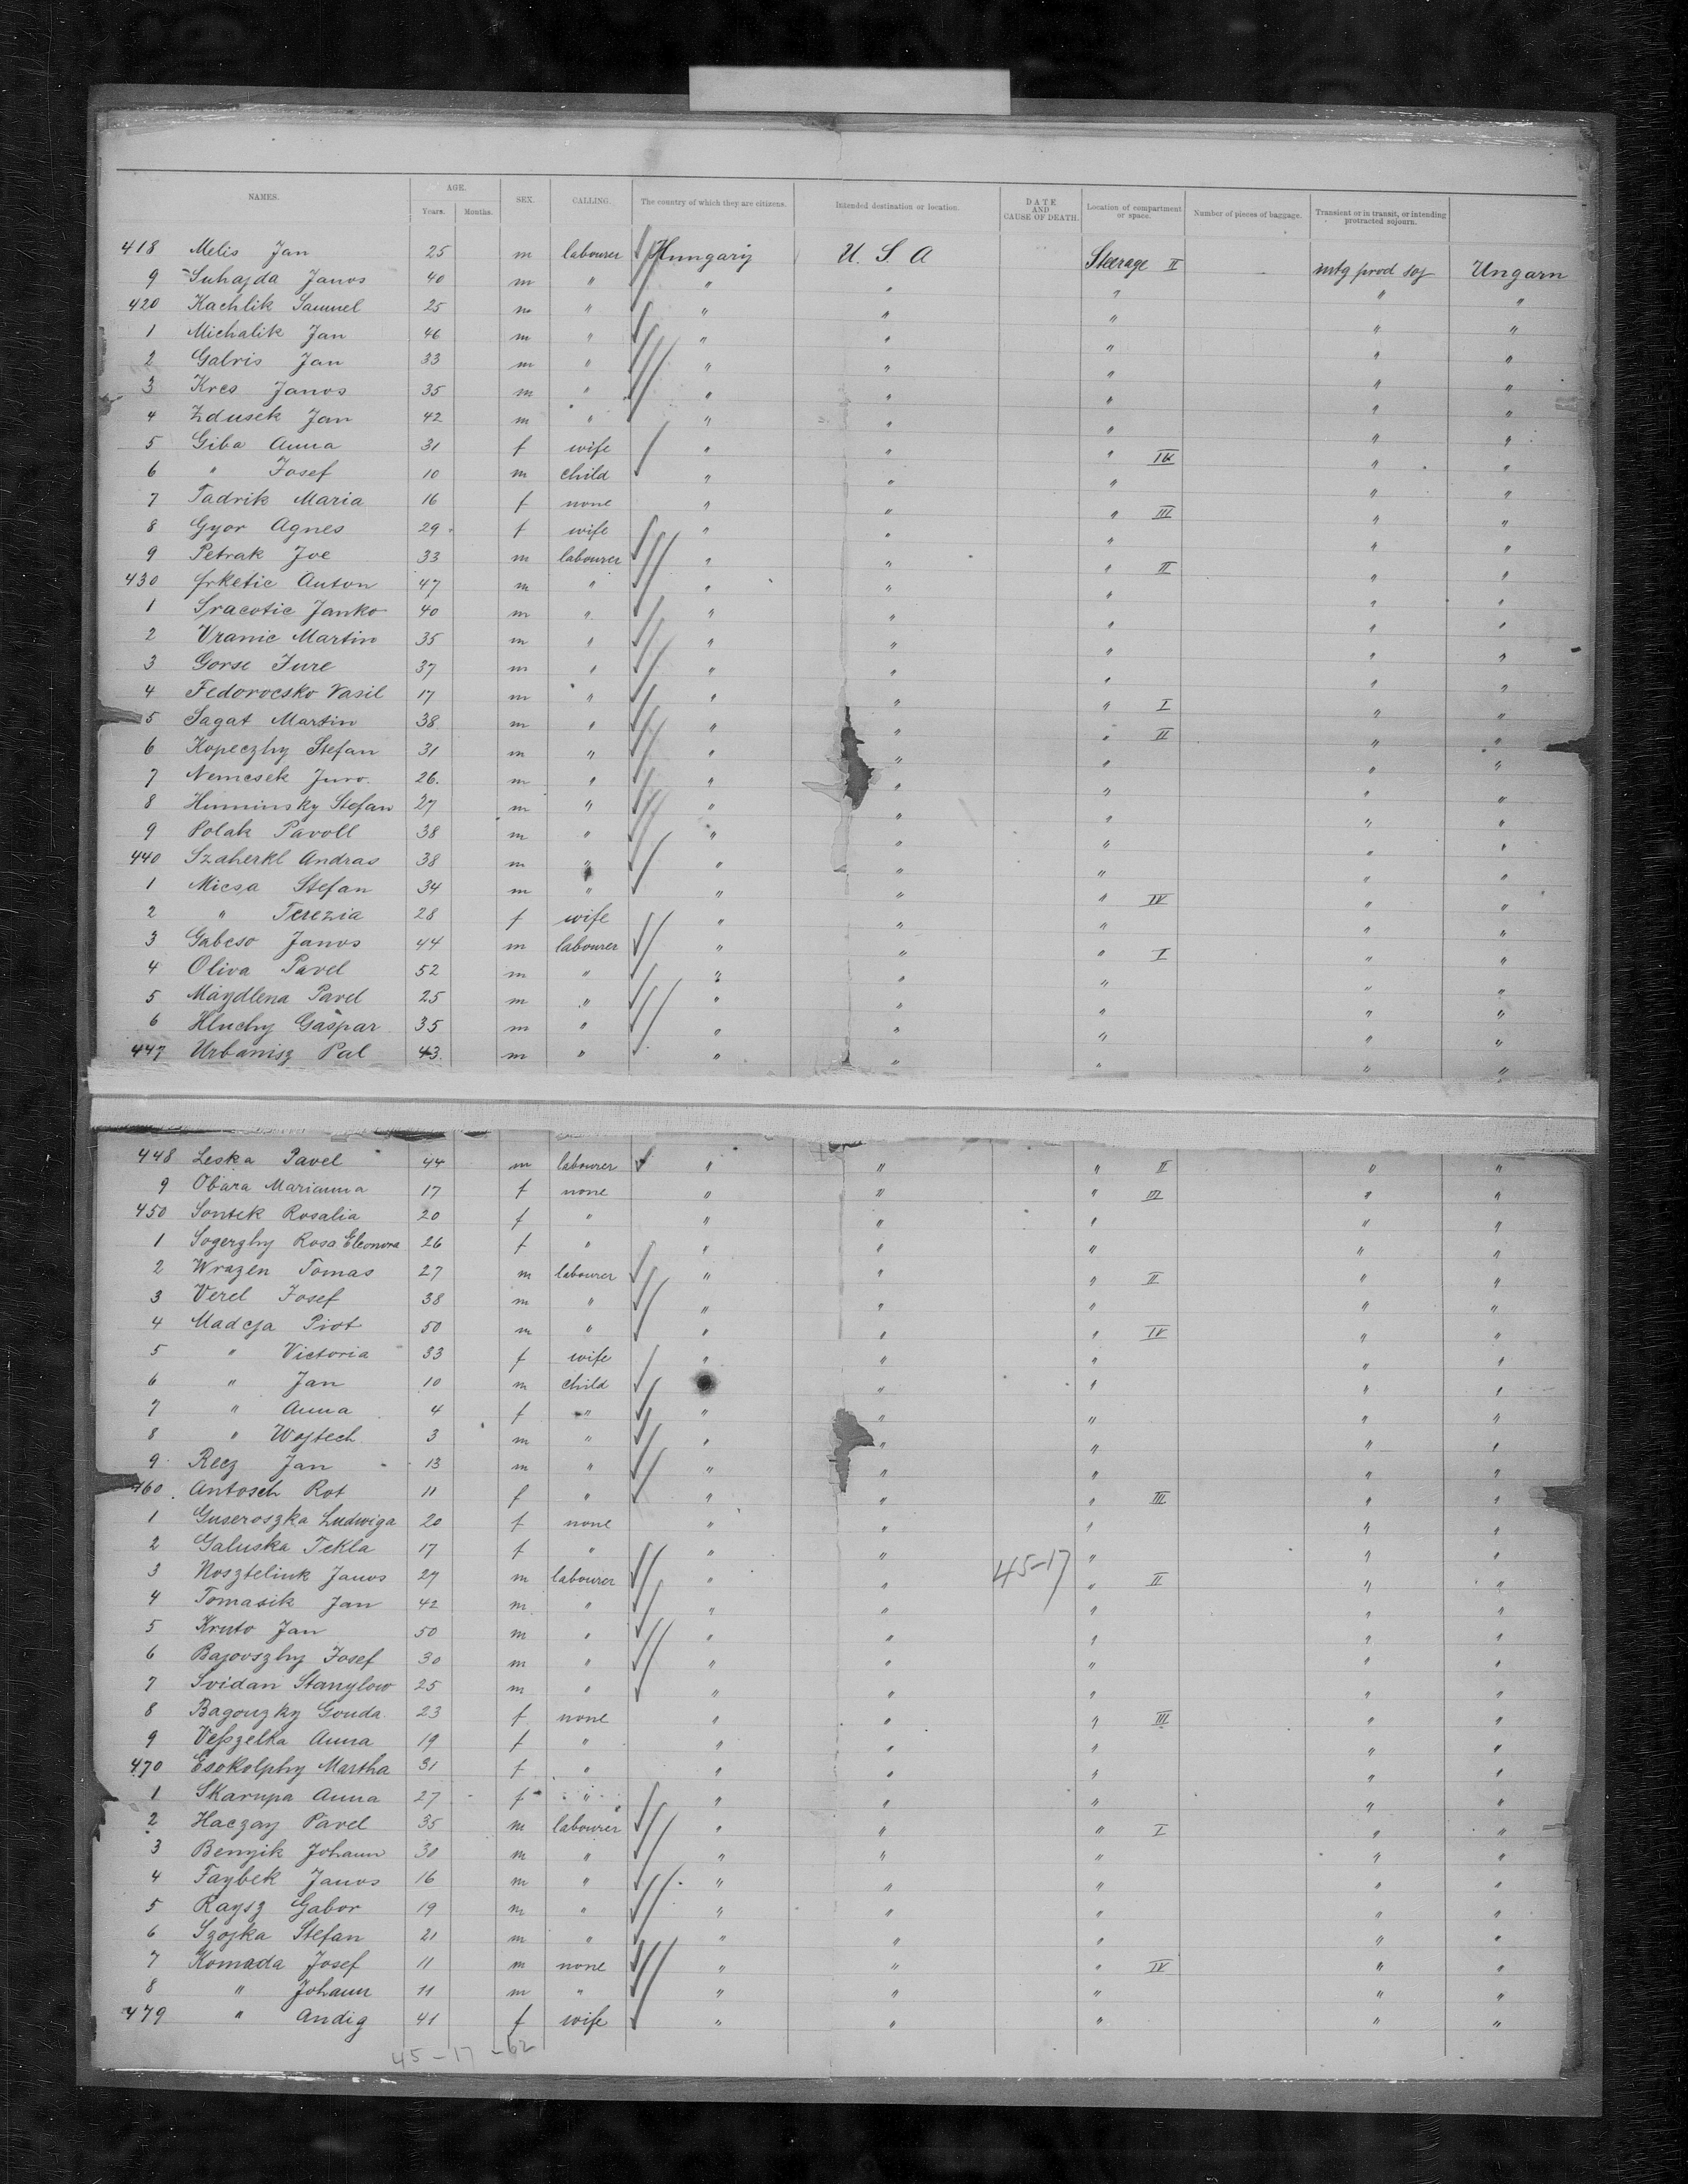 NAMES. AGE. Years. Months. SEX. CALLING. The country of which they are citizens. Intended destination or location. DATE AND CAUSE OF DEATH. Location of compartment or space. Number of pieces of baggage. Transient or in transit, or intending protracted sojourn.
418 Melis Jan 25 m labourer Hungary U. S. A Steerage II intg prod soj Ungarn
9 Suhajda Janos 40 m " " " " " "
420 Kachlik Samuel 25 m " " " " " "
1 Michalik Jan 46 m " " " " " "
2 Galris Jan 33 m " " " " " "
3 Kres Janos 35 m " " " " " "
4 Zdusek Jan 42 m " " " " " "
5 Giba Anna 31 f wife " " " IV " "
6 " Josef 10 m child " " " " "
7 Tadrik Maria 16 f none " " " III " "
8 Gyor Agnes 29 f wife " " " " "
9 Petrak Joe 33 m labourer " " " II " "
430 Frketic Anton 47 m " " " " " "
1 Sracotic Janko 40 m " " " " " "
2 Vranic Martin 35 m " " " " " "
3 Gorse Jure 37 m " " " " " "
4 Fedorocsko Vasil 17 m " " " " I " "
5 Sagat Martin 38 m " " " " II " "
6 Kopeczhy Stefan 31 m " " " " " "
7 Nemcsek Juro 26 m " " " " " "
8 Huminsky Stefan 27 m " " " " " "
9 Polak Pavoll 38 m " " " " " "
440 Szaherkl Andras 38 m " " " " " "
1 Micsa Stefan 34 m " " " " IV " "
2 " Terezia 28 f wife " " " " "
3 Gabcso Janos 44 m labourer " " " I " "
4 Oliva Pavel 52 m " " " " " "
5 Maydlena Pavel 25 m " " " " " "
6 Hluchy Gaspar 35 m " " " " " "
447 Urbanisz Pal 43 m " " " " " "
448 Leska Pavel 44 m labourer " " " II " "
9 Obara Marianna 17 f none " " " III " "
450 Sontek Rosalia 20 f " " " " " "
1 Sogerzhy Rosa Eleonora 26 f " " " " " "
2 Wrazen Tomas 27 m labourer " " " II " "
3 Verel Josef 38 m " " " " " "
4 Madeja Piot 50 m " " " " IV " "
5 " Victoria 33 f wife " " " " "
6 " Jan 10 m child " " " "
7 " Anna 4 f " " " " " "
8 " Wojtech 3 m " " " " " "
9 Recz Jan 13 m " " " " " "
460 Antosch Rot 11 f " " " " III " "
1 Guseroszka Ludwiga 20 f none " " " " "
2 Galuska Tekla 17 f " " " " " "
3 Nosztelink Janos 27 m labourer " " 45-17 " II " "
4 Tomasik Jan 42 m " " " " " "
5 Kruto Jan 50 m " " " " " "
6 Bajovszhy Josef 30 m " " " " " "
7 Svidan Stanylow 25 m " " " " " "
8 Bagouzky Gouda 23 f none " " " III " "
9 Veszelka Anna 19 f " " " " " "
470 Esokolphy Martha 31 f " " " " " "
1 Skarupa Anna 27 f " " " " " "
2 Haczay Pavel 35 m labourer " " " I " "
3 Benyik Johann 30 m " " " " " "
4 Faybek Janos 16 m " " " " " "
5 Raysz Gabor 19 m " " " " " "
6 Szojka Stefan 21 m " " " " " "
7 Komada Josef 11 m none " " " IV " "
8 " Johann 11 m " " " " " "
479 " Andig 41 f wife " " " " "
45-17-62